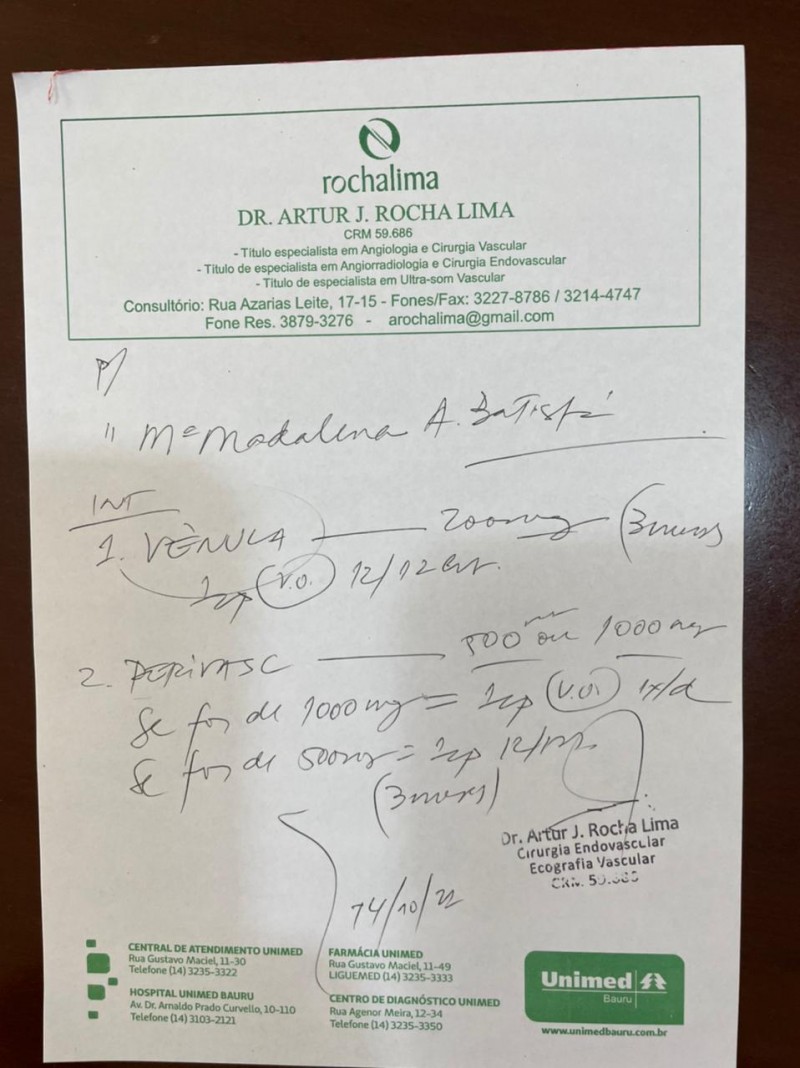 rochalima
DR. ARTUR J. ROCHA LIMA
CRM 59.686
- Título especialista em Angiologia e Cirurgia Vascular
- Título de especialista em Angiorradiologia e Cirurgia Endovascular
- Título de especialista em Ultra-som Vascular
Consultório: Rua Azarias Leite, 17-15 - Fones/Fax: 3227-8786 / 3214-4747
Fone Res. 3879-3276 - arochalima@gmail.com
p/
" Mª Madalena A. Batista
INT
1. VÊNULA 200mg (3 meses
1cp (V.O.) 12/12
2. PERIVASC 500 ou 1000 mg
Se for de 1000 mg = 1cp (V.O.) 1x/d
Se for de 500mg = 1cp 12/12
(3 meses)
Dr. Artur J. Rocha Lima
Cirurgia Endovascular
Ecografia Vascular
CRM. 59.686
/10/22
CENTRAL DE ATENDIMENTO UNIMED
Rua Gustavo Maciel, 11-30
Telefone (14) 3235-3322
HOSPITAL UNIMED BAURU
Av. Dr. Arnaldo Prado Curvello, 10-110
Telefone (14) 3103-2121
FARMÁCIA UNIMED
Rua Gustavo Maciel, 11-49
LIGUEMED (14) 3235-3333
CENTRO DE DIAGNÓSTICO UNIMED
Rua Agenor Meira, 12-34
Telefone (14) 3235-3350
Unimed
Bauru
www.unimedbauru.com.br